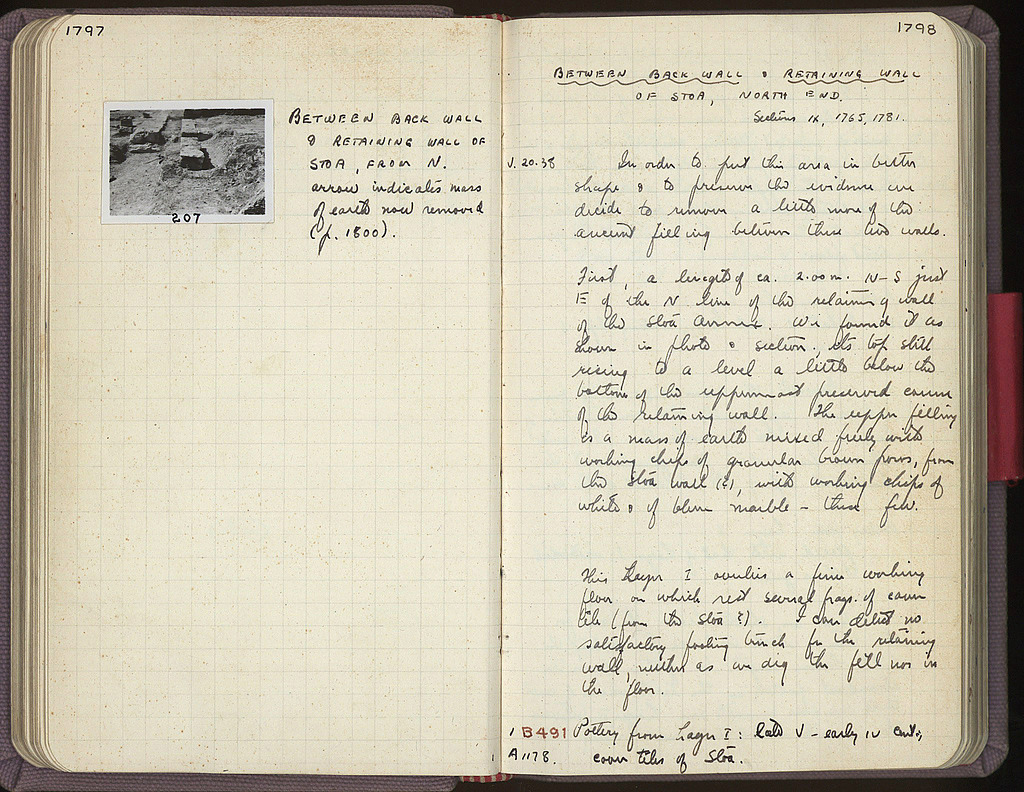 1797
BETWEEN BACK WALL
& RETAINING WALL OF
STOA, FROM N.
arrow indicates mass
of earth now removed
(p. 1800).
207
1798
BETWEEN BACK WALL & RETAINING WALL
OF STOA, NORTH END.
Sections IX, 1765, 1781.
V. 20. 38
In order to put this area in better
shape & to preserve the evidence we
decide to remove a little more of the
ancient filling between these two walls.
First, a length of ca. 2.00 m. N-S just
E of the N line of the retaining wall
of the Stoa Annex. We found it as
shown in photo & section, its top still
rising to a level a little below the
bottom of the uppermost preserved course
of the retaining wall. The upper filling
is a mass of earth mixed freely with
working chips of granular brown poros, from
the Stoa wall (?), with working chips of
white & of blue marble - these few.
This Layer I overlies a firm working
floor on which rest several frags. of cover
tile (from the Stoa ?). I can detect no
satisfactory footing trench for the retaining
wall, neither as we dig the fill nor in
the floor.
1 B491 Pottery from Layer I: late V - early IV cent.;
A1178. cover tiles of Stoa.